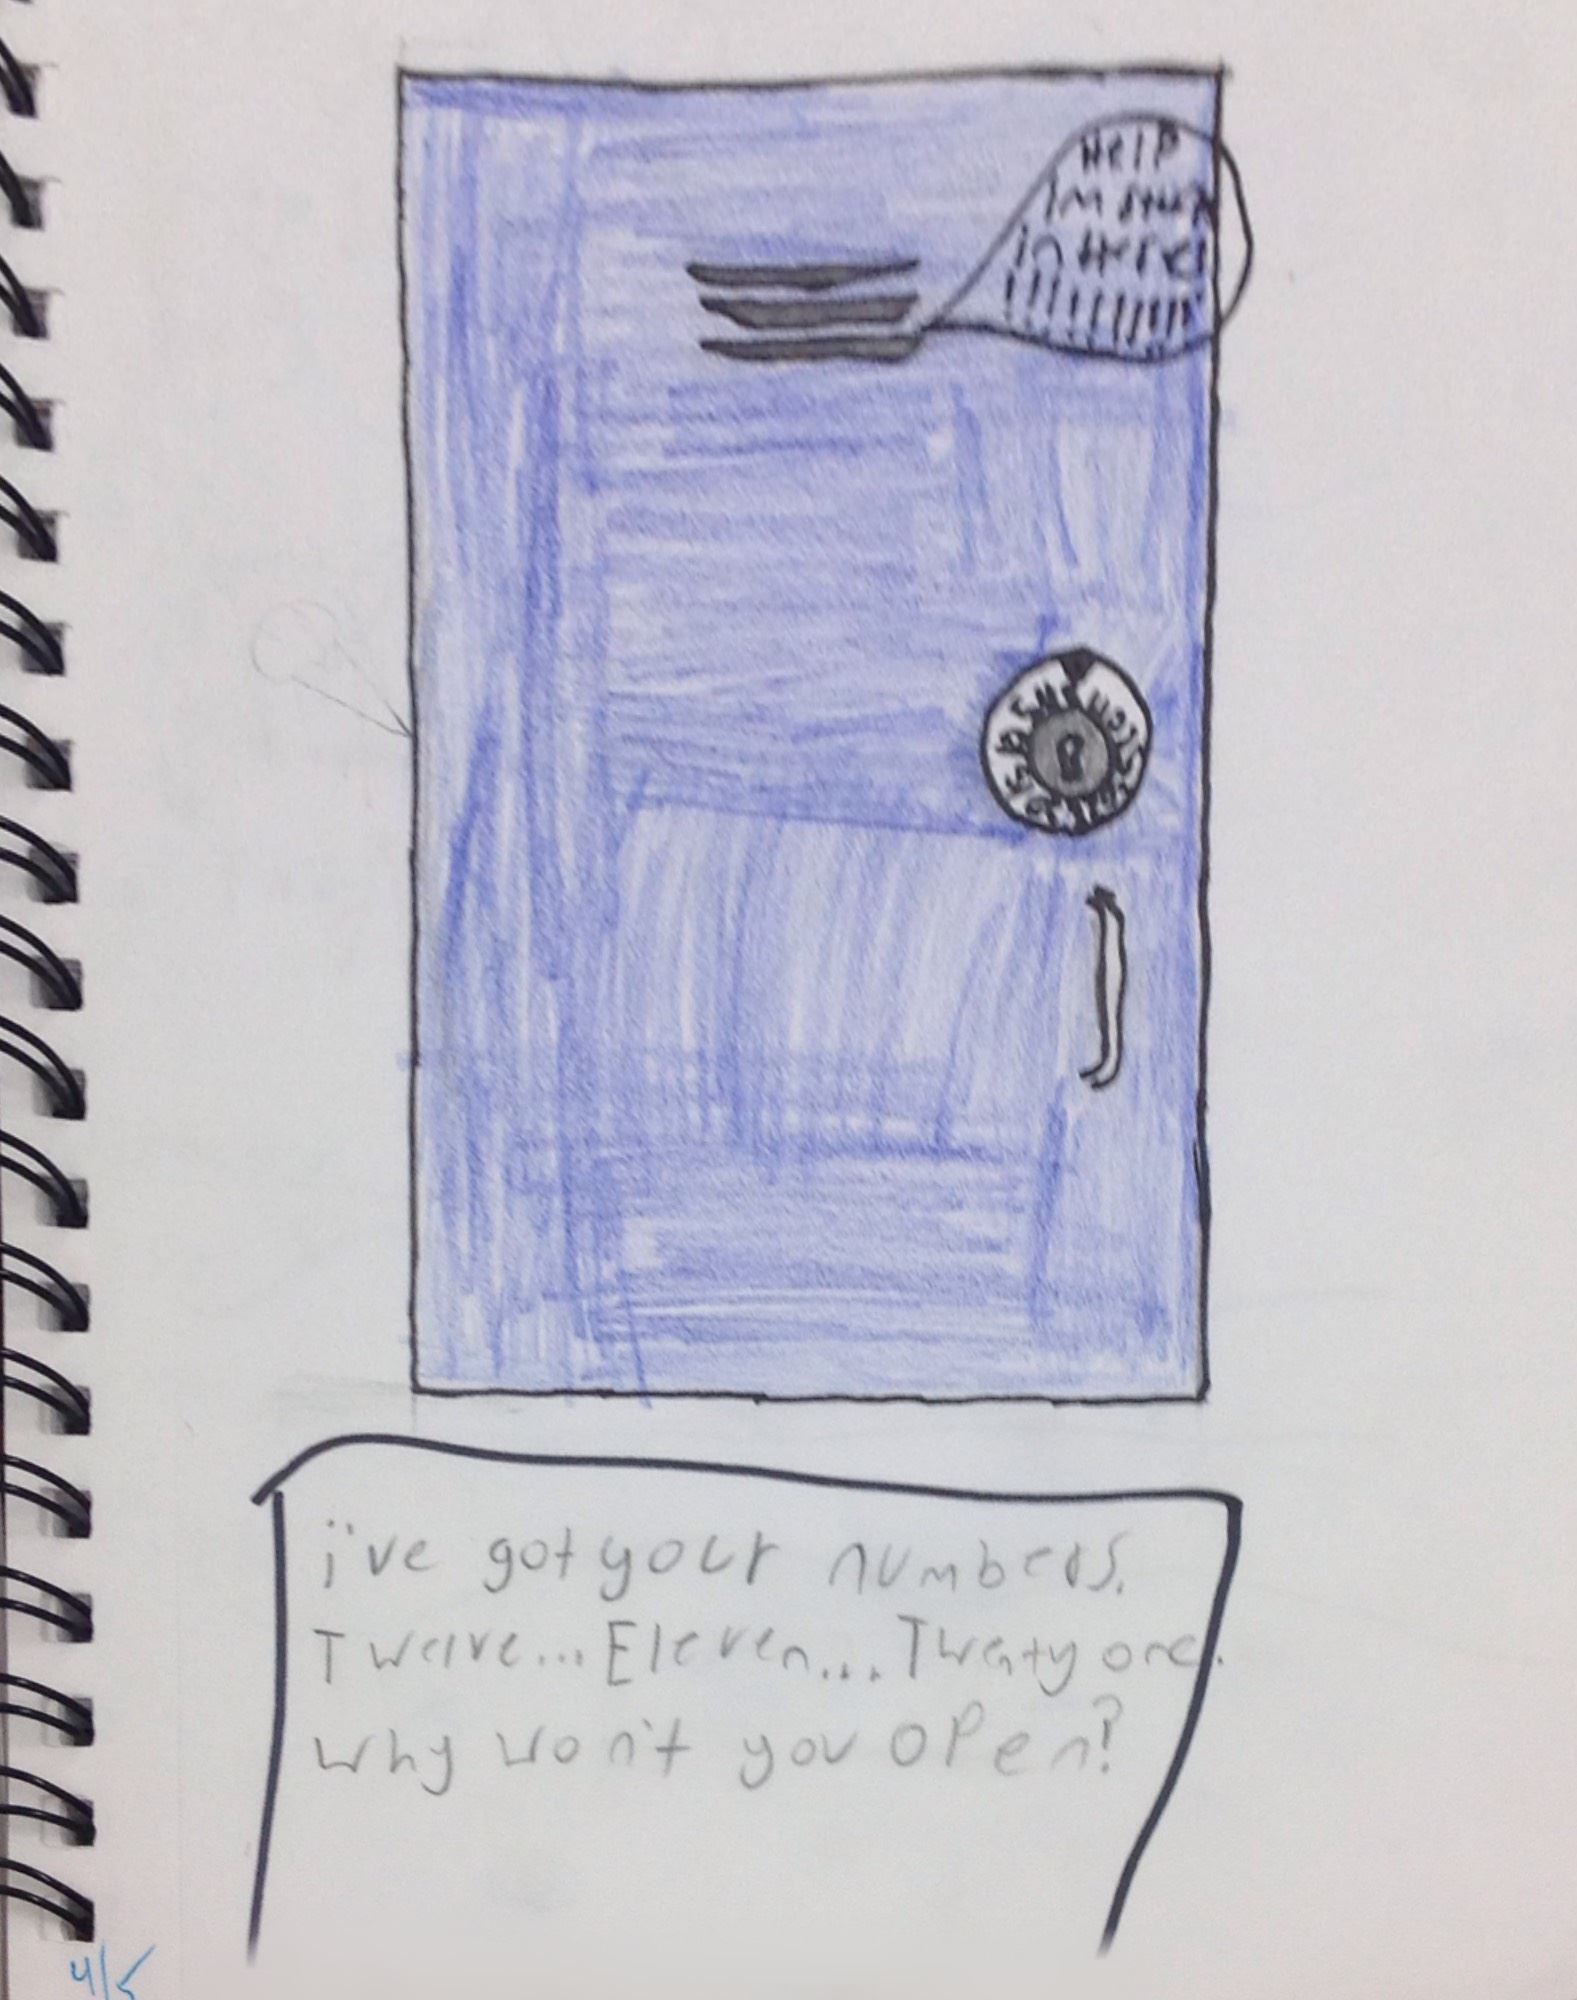 HELP
Im stuck
in Here
!!!!!!!!!!
i've got your numbers.
Twelve... Eleven... Twenty one.
why won't you open?
4/5